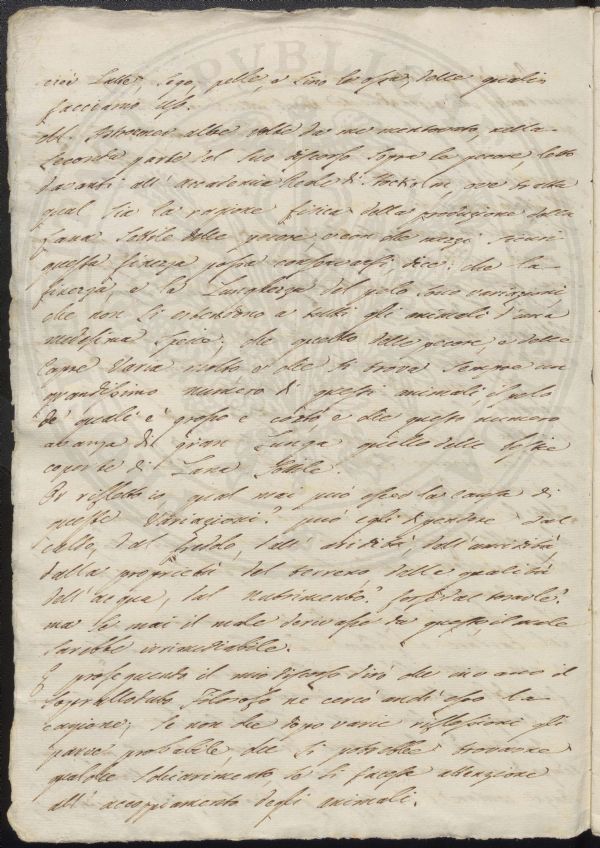 cioè Latte, Sego, pelle, e sino le ossa, delle quali
facciamo uso.
altre volte da me mentovato, nella
seconda parte del suo discorso sopra le pecore, letto
davanti all' Accademia Reale di Stockolm, ove tratta
qual sia la ragione fisica della produzione della
Lana sottile delle pecore, e con che mezzi
questa finezza possa conservarsi, dice: che la
finezza, e la Lunghezza del pelo sono variazioni
che non si estendono a tutti gli animali d'una
medesima specie, che quello delle pecore, e delle
capre varia molto e che si trova sempre un
grandissimo numero di questi animali, il pelo
de' quali è grosso e corto, e che questo numero
avanza di gran Lunga quello delle bestie
coperte di Lana sottile.
Or rifletto io qual mai può essere la causa di
queste variazioni? può egli dipendere dal
caldo, dal freddo, dall' aridità, dell' umidità
dalla proprietà del terreno, delle qualità
dell' acqua, dal nutrimento?
ma se mai il male derivasse da questo, il male
sarebbe irrimediabile.
E proseguendo il mio discorso dirò che
Soprallodato Filosofo ne cercò anch' esso la
cagione; se non che dopo varie riflessioni gli
parve probabile, che si potrebbe trovarne
qualche schiarimento, se si facesse attenzione
all' accoppiamento degli animali.